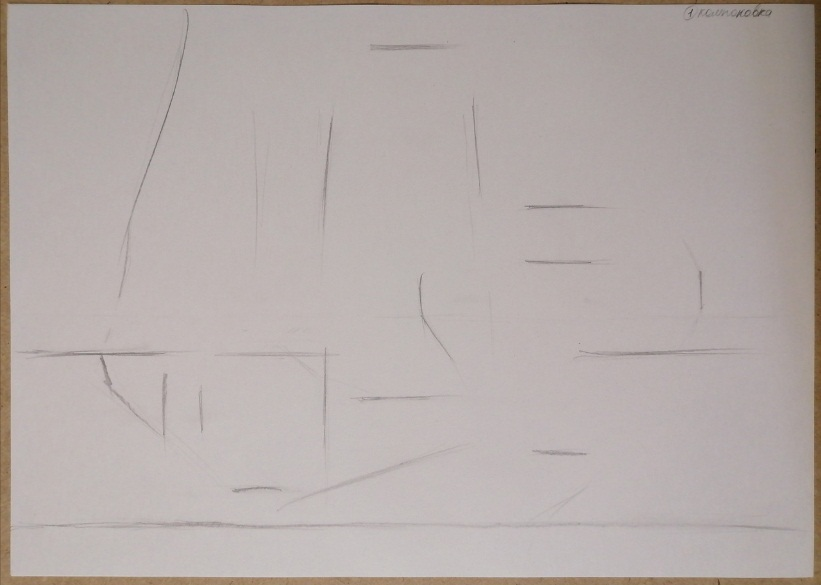 ① компоновка